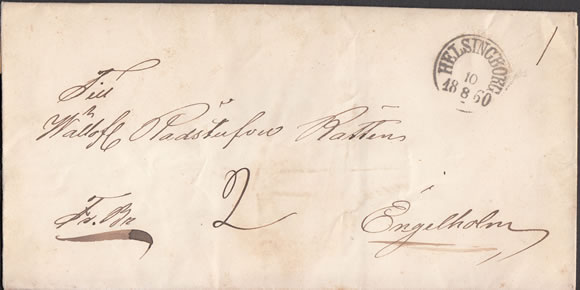 HELSINGBORG
10
18 8 60
1
Till
Wällofl Rådstufvu Rätten
Fr. Br
2
Engelholm